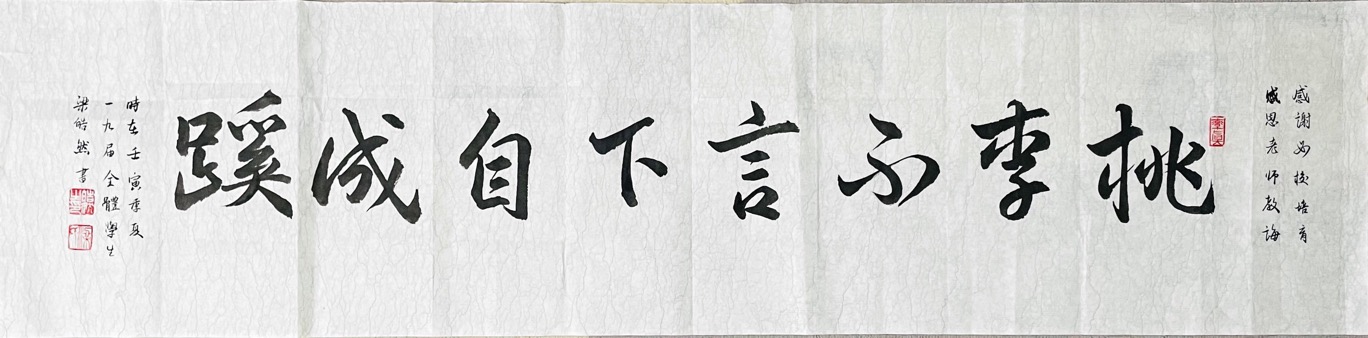 感謝母校培育
感恩老师教誨
桃李不言下自成蹊
時在壬寅季夏
一九届全體學生
梁皓然書